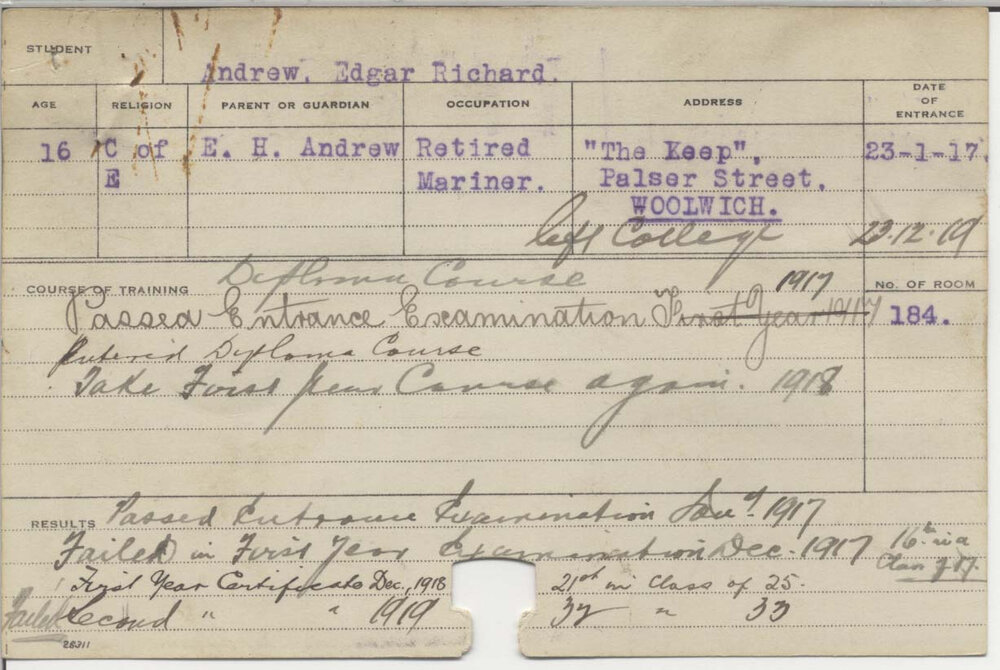 STUDENT
Andrew, Edgar Richard.
AGE RELIGION PARENT OR GUARDIAN OCCUPATION ADDRESS DATE OF ENTRANCE
16 C of E. H. Andrew Retired "The Keep", 23-1-17.
E Mariner. Palser Street,
WOOLWICH.
left College 23.12.19
Diploma Course
COURSE OF TRAINING 1917 NO. OF ROOM
Passed Entrance Examination First Year 1917 184.
Entered Diploma Course
Take First Year Course again. 1918
RESULTS Passed Entrance Examination Jany 1917
Failed in First Year Examination Dec. 1917 16th in a
Class of 17.
First Year Certificate Dec, 1918 21st in Class of 25.
Failed Second " " 1919 32 " 33
28311